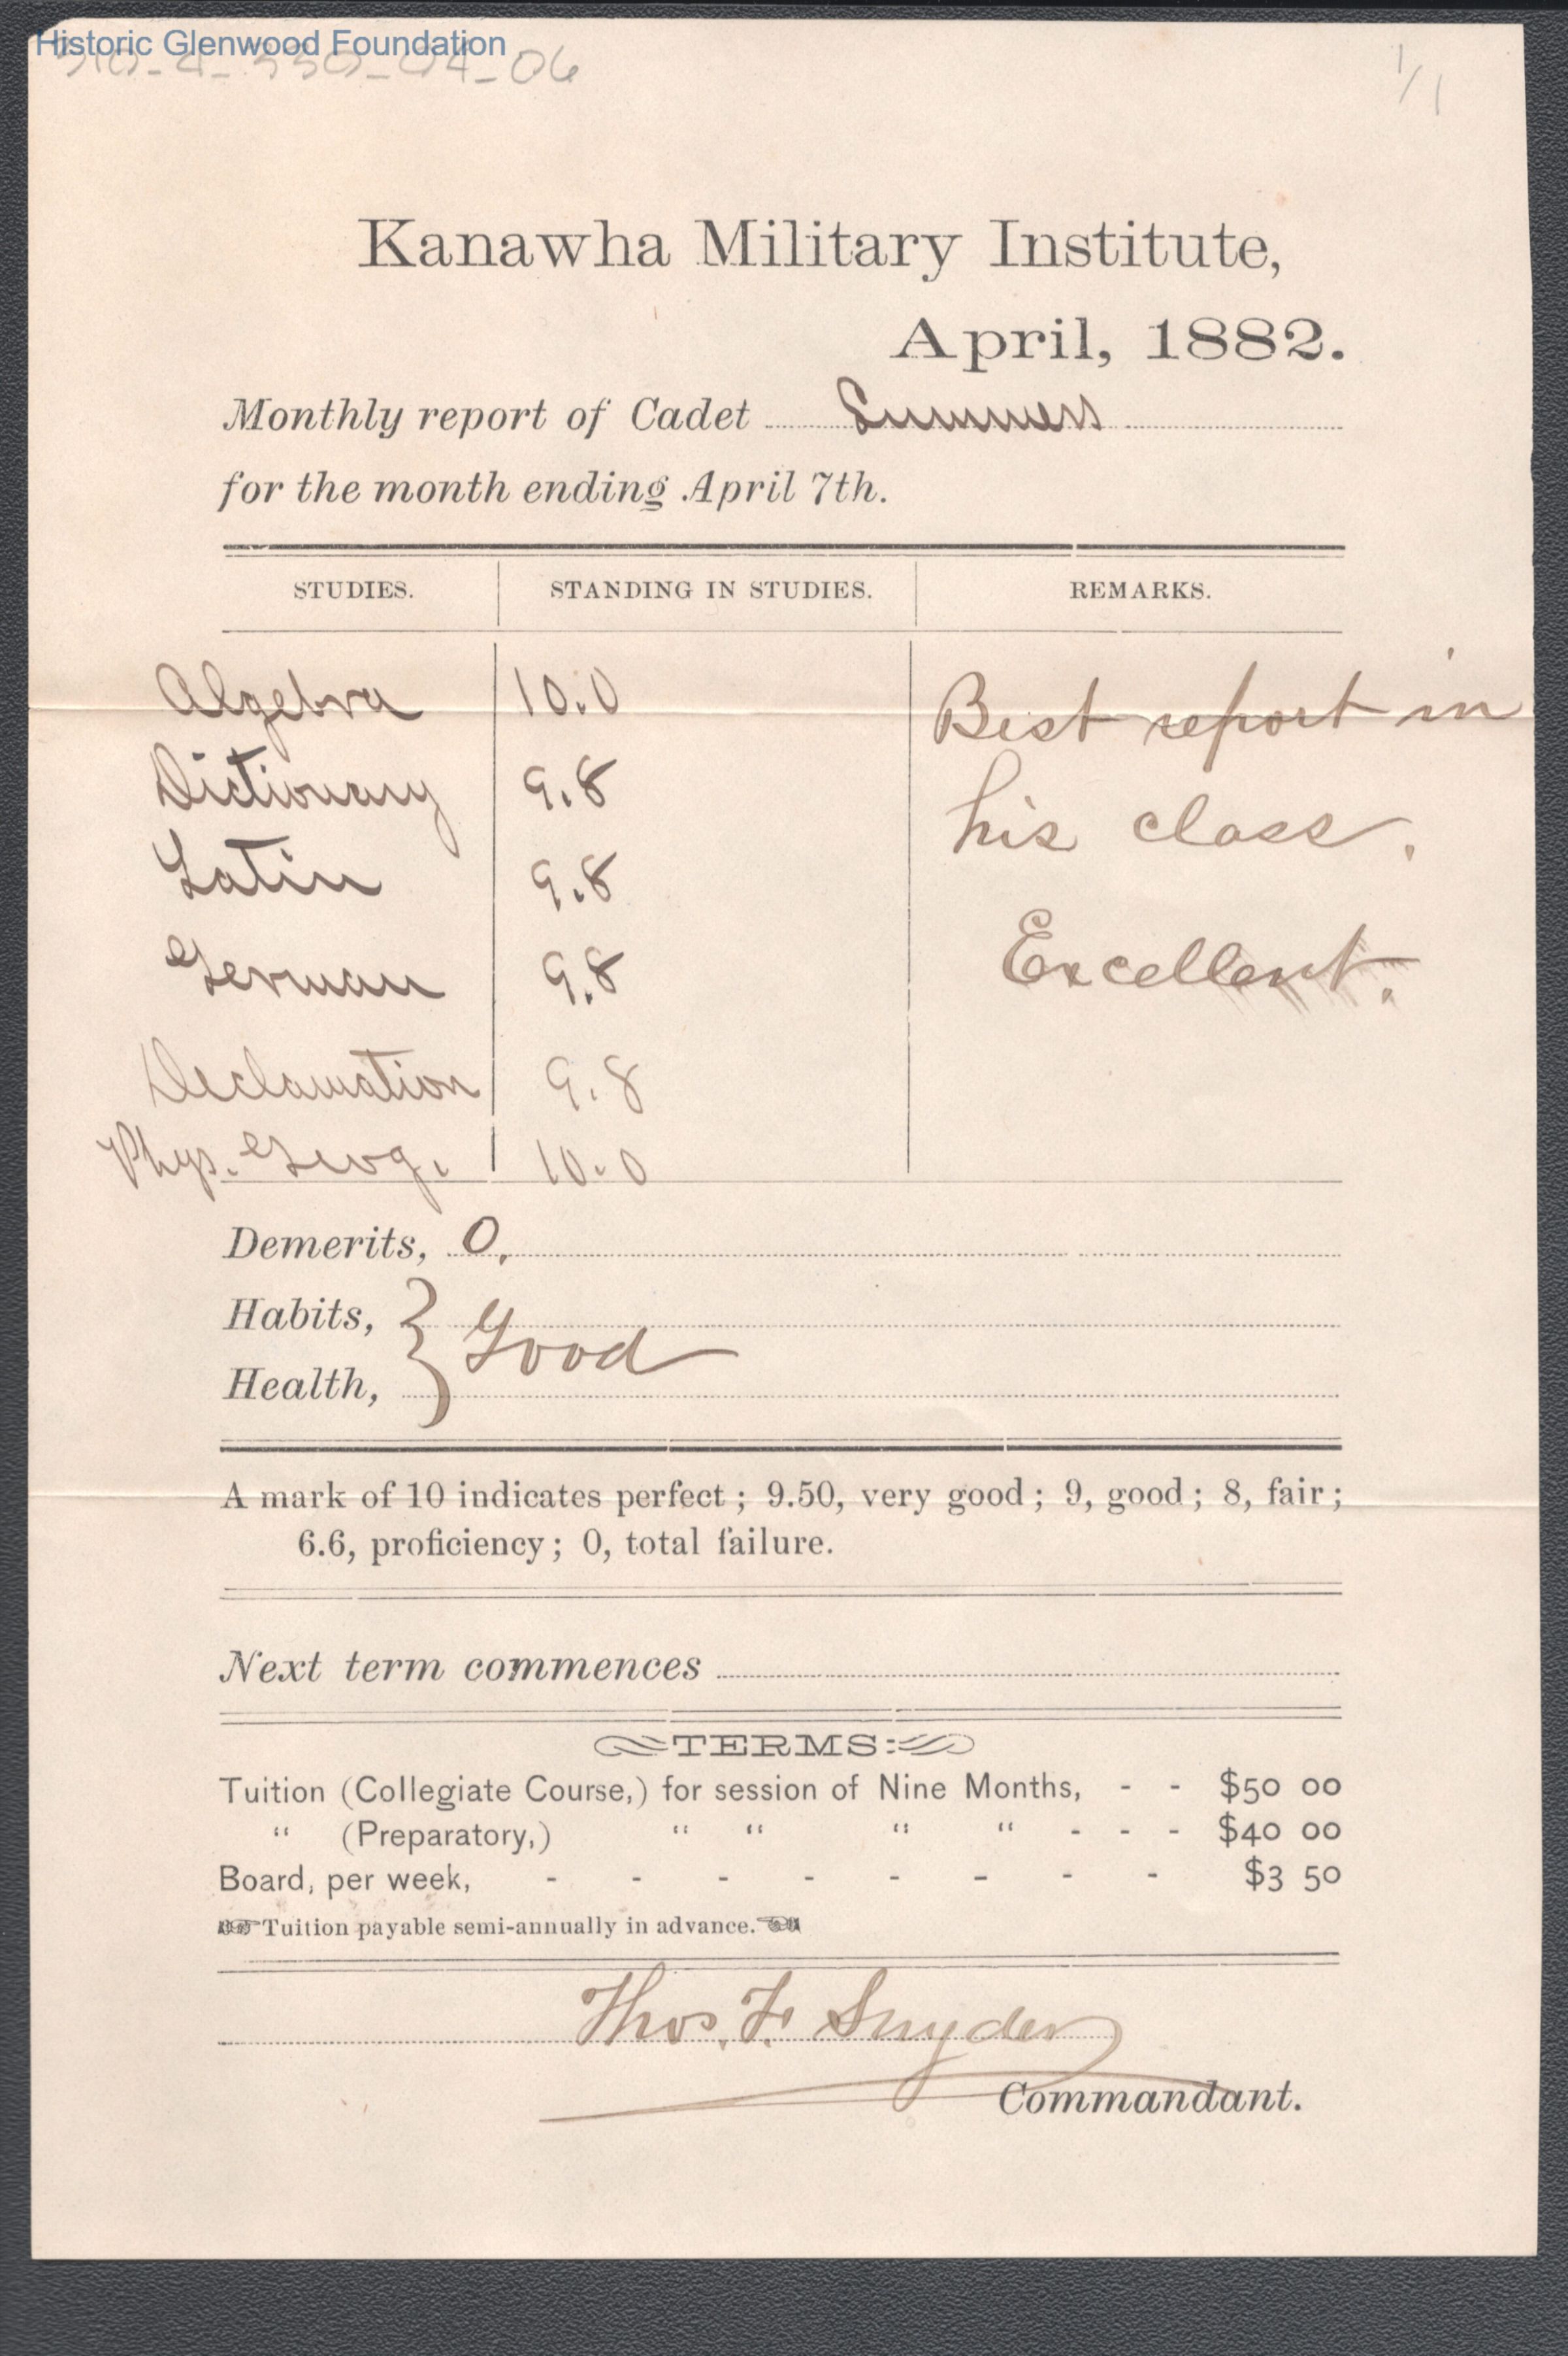 Historic Glenwood Foundation
1/1
Kanawha Military Institute,
April, 1882.
Monthly report of Cadet Summers
for the month ending April 7th.
STUDIES. STANDING IN STUDIES. REMARKS.
Algebra 10.0 Best report in
Dictionary 9.8 his class.
Latin 9.8
German 9.8 Excellent.
Declamation 9.8
Phys. Geog. 10.0
Demerits, 0.
Habits, } Good
Health,
A mark of 10 indicates perfect; 9.50, very good; 9, good; 8, fair;
6.6, proficiency; 0, total failure.
Next term commences
TERMS:
Tuition (Collegiate Course,) for session of Nine Months, - - $50 00
" (Preparatory,) " " " " - - - $40 00
Board, per week, - - - - - - - - $3 50
☞Tuition payable semi-annually in advance.☜
Thos. F. Snyder
Commandant.